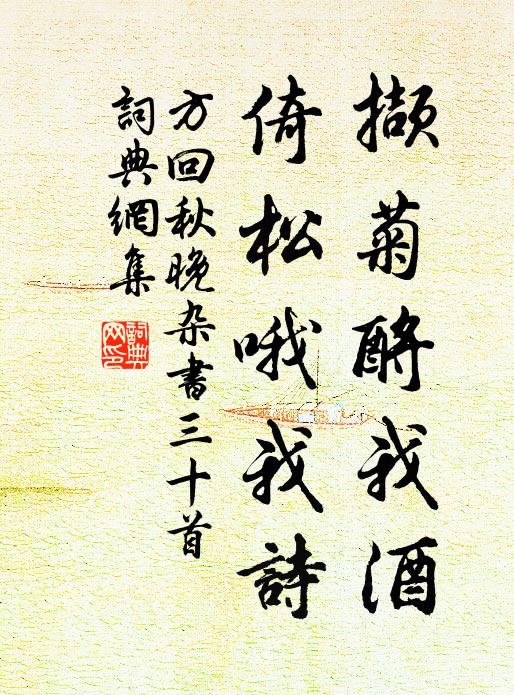 擷菊酹我酒
倚松哦我詩
方回秋晚杂書三十首
詞典網集
詞典网印